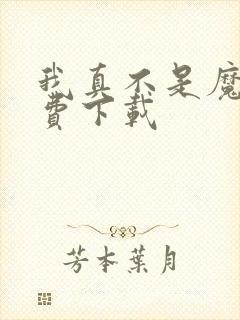 我真不是魔
費下載
芳本葉月